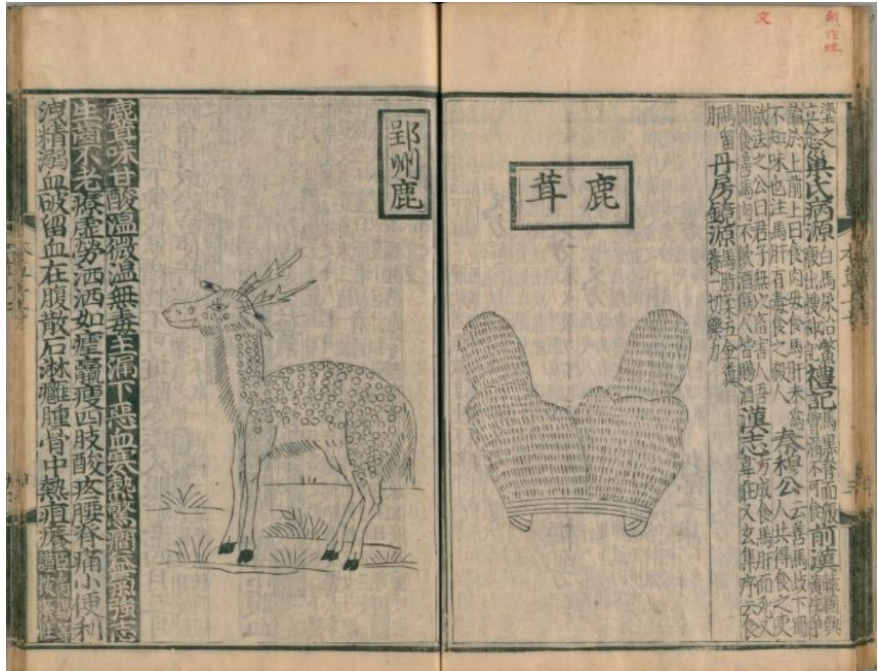 巢氏病源 白馬尿治鱉
瘕出搜神記 禮記 馬黑脊而般
臂漏不可食 前漢 轅固與
黃生爭
論於上前上曰食肉毋食馬肝未為
不知味也注馬肝有毒食之殺人 秦穆公 云善馬歧下
人共得食之吏
欲法之公曰君子無以畜害人吾
聞食善馬肉不飲酒傷人皆賜酒 漢志 文成食馬肝而死又
韋莊又玄集序云食
馬留
肝 丹房鏡源 馬脂柔五金糞
養一切藥力
鹿茸
郢州鹿
鹿茸味甘酸溫微溫無毒主漏下惡血寒熱驚癇益氣強志
生齒不老療虛勞洒洒如瘧羸瘦四肢酸疼腰脊痛小便利
洩精溺血破留血在腹散石淋癰腫骨中熱疽癢
文